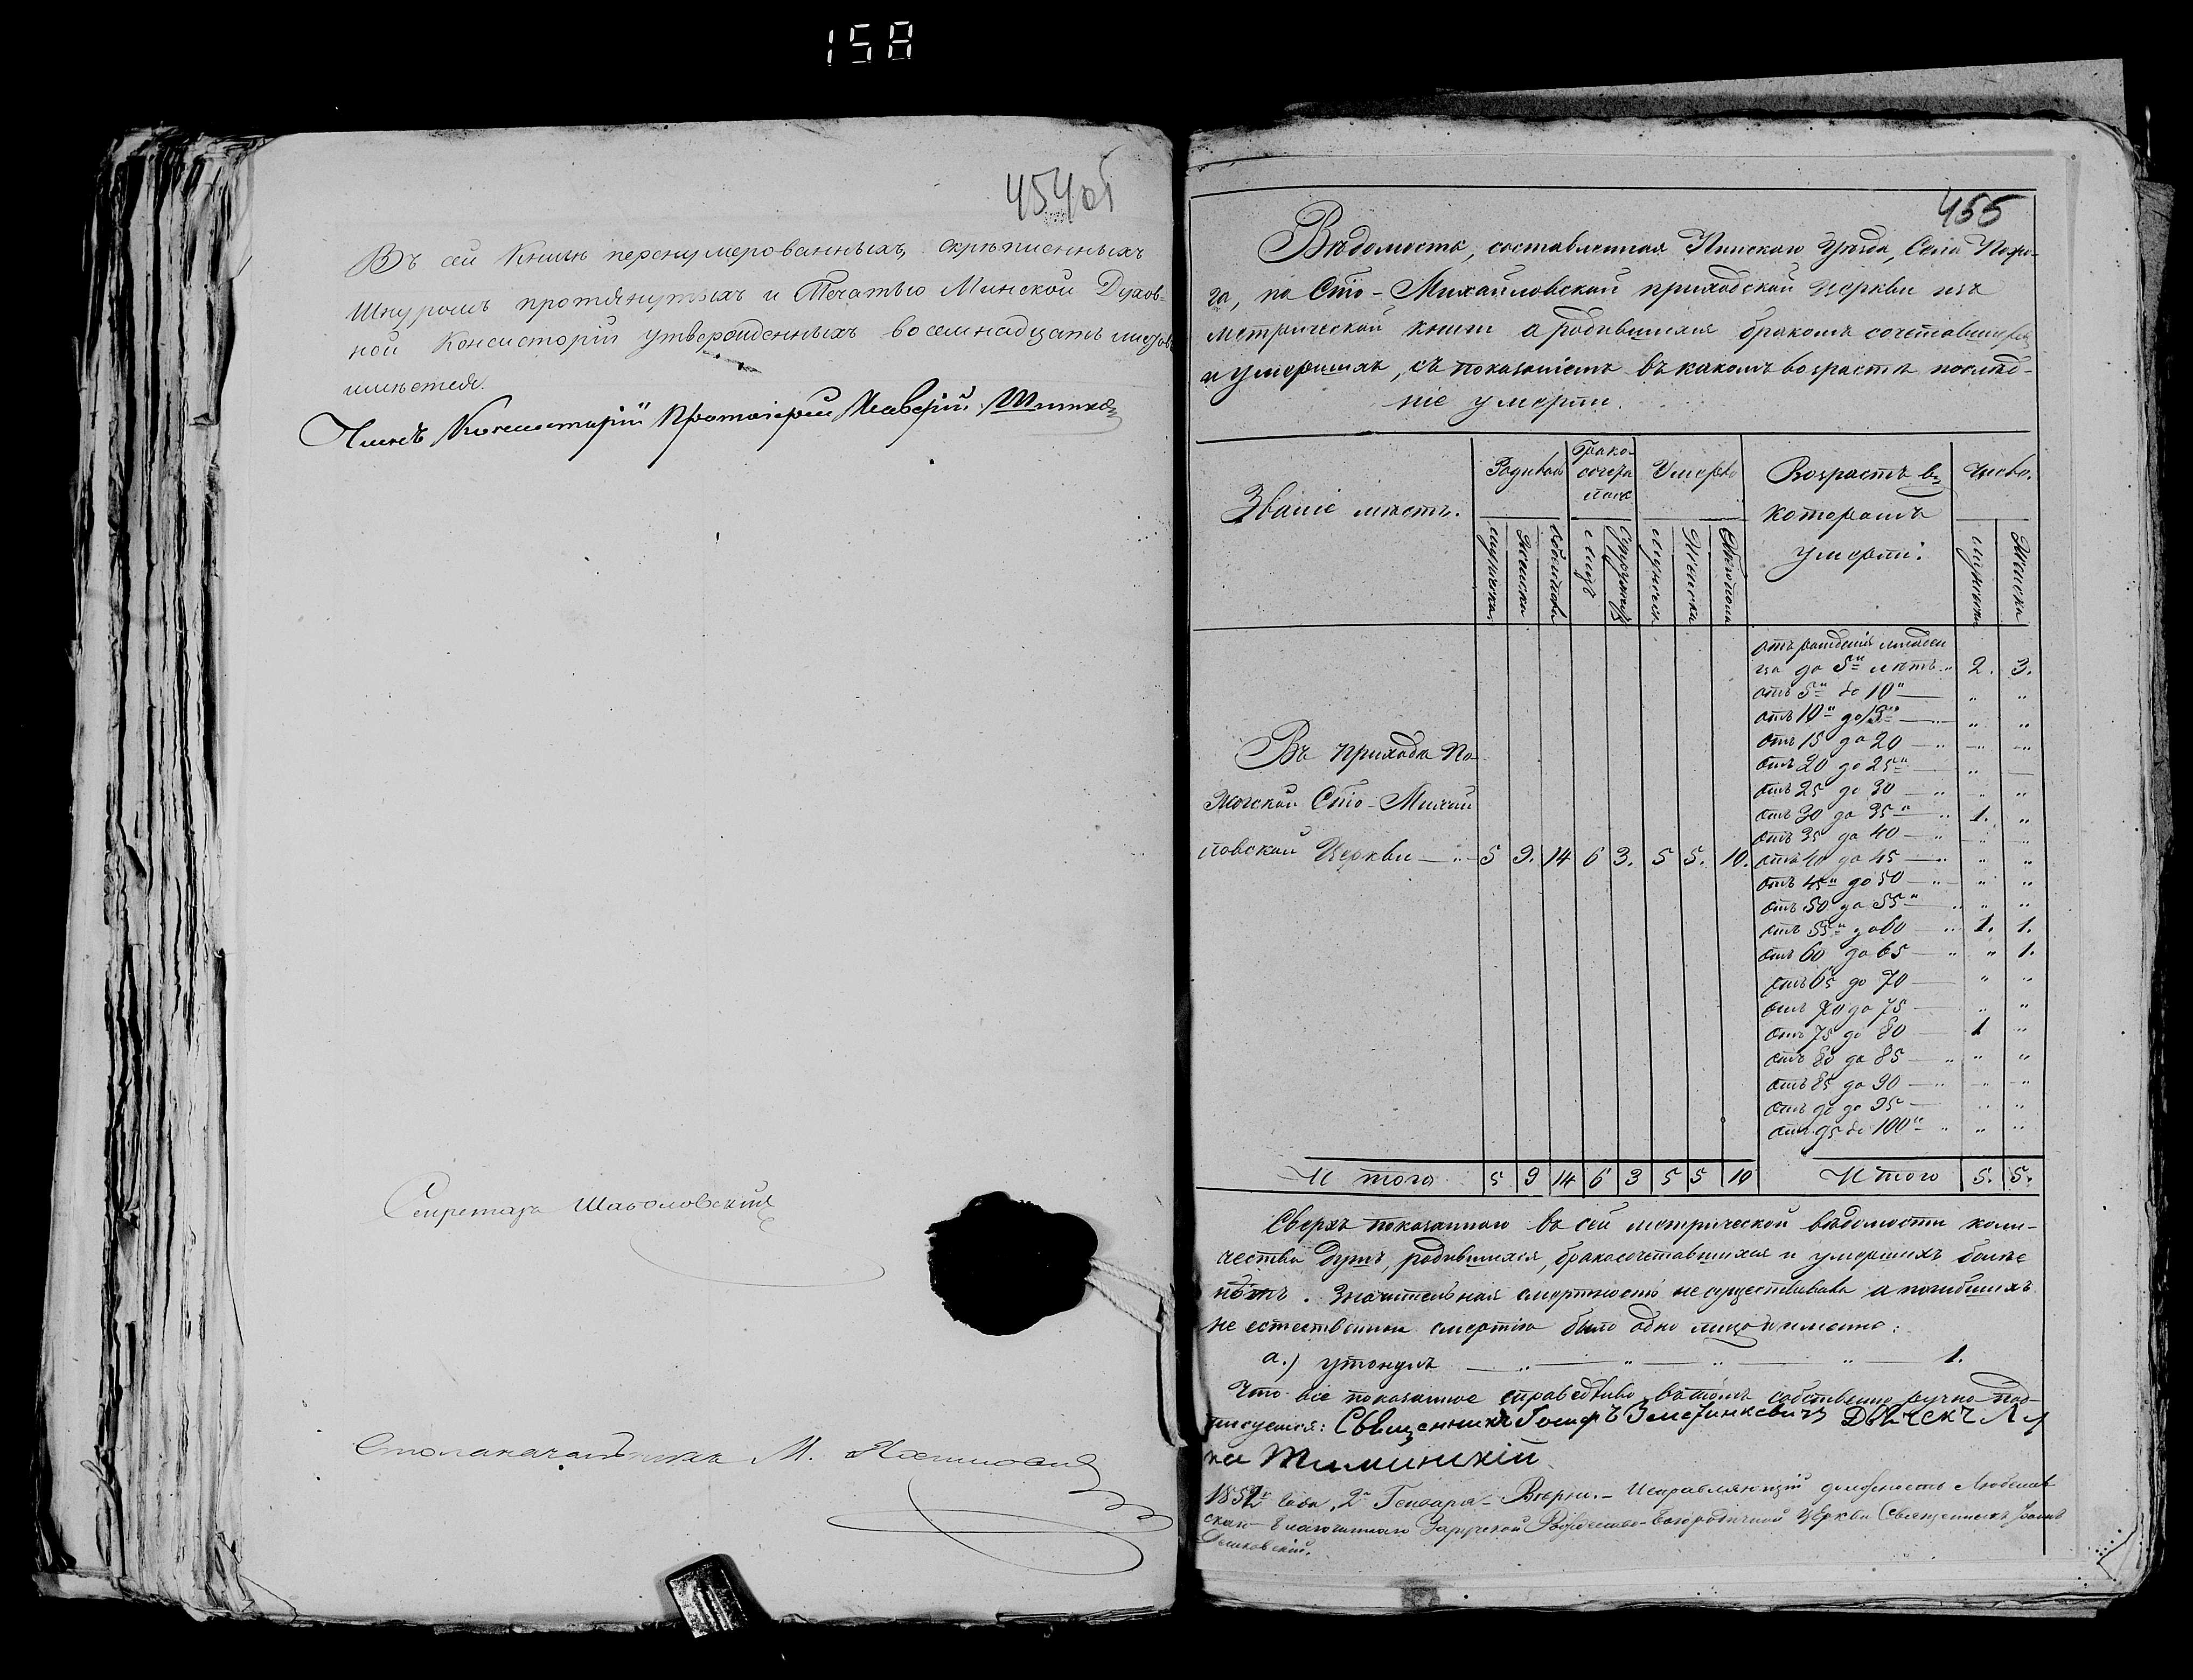 158
454об
Въ сей книгѣ перенумерованныхъ, скрѣпленныхъ
Шнуромъ протянутыхъ и Печатью Минской Духов-
ной Консисторіи утвержденныхъ восемнадцать листовъ
имѣется.
Членъ Консисторіи Протоіерей
Секретарь
Столоначальникъ М.
455
Вѣдомость, составленная Пинскаго Уѣзда, Села
го, по Свято-Михайловской приходской церкви изъ
метрической книги о родившихся бракомъ сочетавшихся
и умершихъ, съ показаніемъ въ какомъ возрастѣ послѣд-
ніе умерли.
Званіе мѣстъ.
Родилось
Брако-
Умерло
Возрастъ въ
которомъ
умерли:
Число.
Мужеска
Женска
Обоего пола
Лицъ
Супружествъ
Мужеска
Женска
Обоего пола
Мужеска
Женска
отъ рожденія младен
ца до 5ти лѣтъ " 2. 3.
отъ 5и до 10и — " "
отъ 10и до 15и — " "
отъ 15 до 20 — " "
отъ 20 до 25и — " —
отъ 25 до 30 — " "
отъ 30 до 35и — 1. "
отъ 35 до 40 — " "
отъ 40 до 45 — " "
отъ 45и до 50 — " "
отъ 50 до 55и — " "
отъ 55и до 60 — 1. 1.
отъ 60 до 65 — " 1.
отъ 65 до 70 — " "
отъ 70 до 75 — " "
отъ 75 до 80 — 1 "
отъ 80 до 85 — " "
отъ 85 до 90 — " "
отъ 90 до 95 — " "
отъ 95 до 100и " " "
Въ приходѣ По-
жогской Свято-Михай
ловской Церкви — " — 5 9. 14 6 3. 5 5. 10.
И того 5 9 14 6 3 5 5 10 И того 5. 5.
Сверхъ показаннаго въ сей метрической вѣдомости коли-
чества душъ, родившихся, бракосочетавшихся и умершихъ болѣе
нѣтъ. Значительная смертность не существовала а погибшихъ
не естественною смертію было одно лицо именно:
а.) утонулъ — " — " — " — " — 1.
Что все показанное справедливо въ томъ собственноручно под-
писуемся: Священникъ Дьячекъ Лу
ка
1852 года, 2 Генваря Вѣрно. — Исправляющій должность Любешов
скаго Благочиннаго Зарѣчской Рождество-Богородичной Церкви Священникъ Іоаннъ